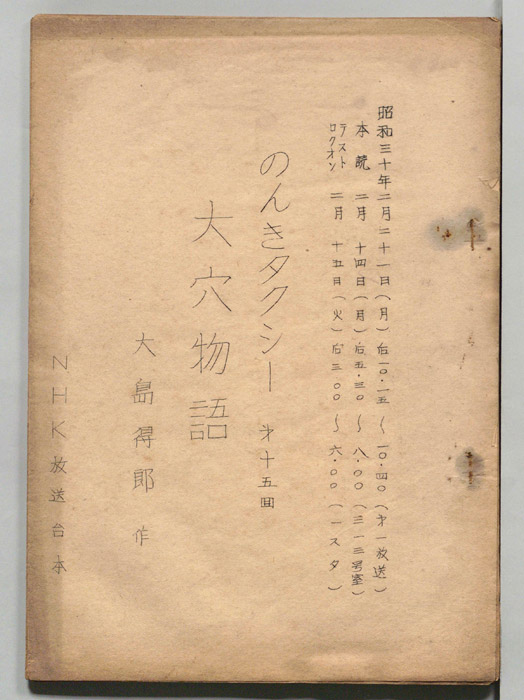 昭和三十年二月二十一日(月)后一〇・一五〜一〇・四〇(才一放送)
本読 二月 十四日(月)后五・三〇〜八・〇〇(三一三号室)
テスト
ロクオン 二月 十五日(火)后三・〇〇〜六・〇〇(一スタ)
のんきタクシー 才十五回
大穴物語
大島得郎 作
NHK放送台本